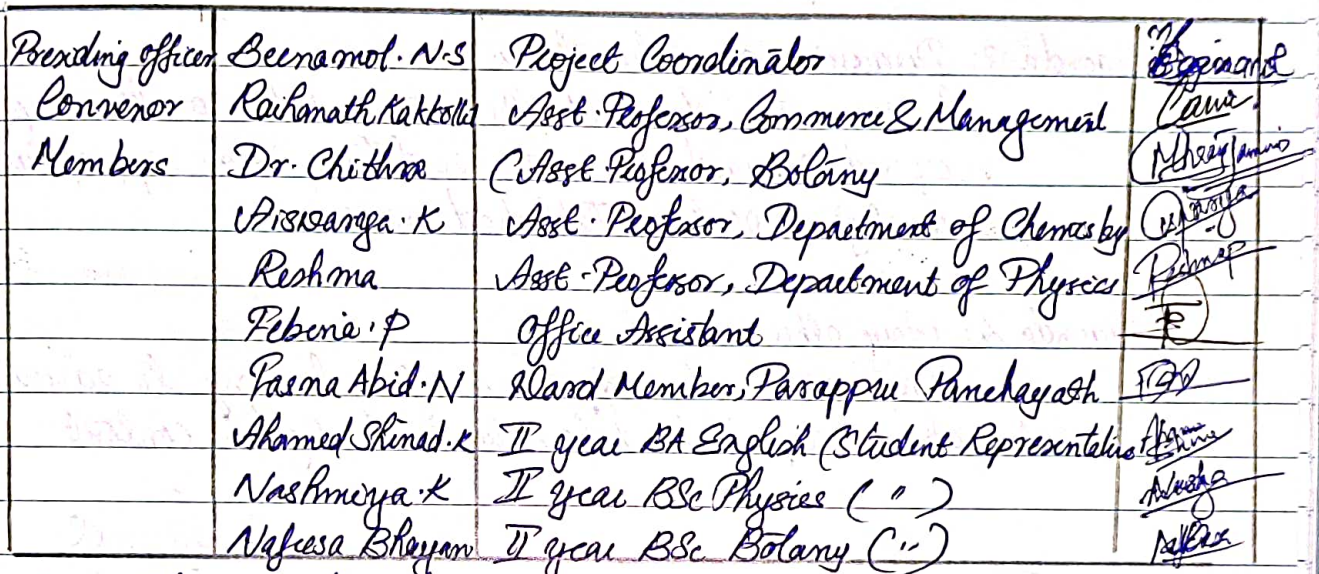 Presiding officer Beenamol. N.S Project Coordinator
Convenor Raihanath Kakkolil Asst. Professor, Commerce & Management
Members Dr. Chithra (Asst Professor, Botany
Aiswarya. K Asst. Professor, Department of Chemistry
Reshma Asst. Professor, Department of Physics Reshma P
Febina. P Office Assistant
Fasna Abid. N Ward Member, Parappu Panchayath
Ahamed Shinad. K II year BA English (Student Representative
Nashmiya. K II year BSc Physics ( " )
Nafeesa II year BSc Botany ( " )